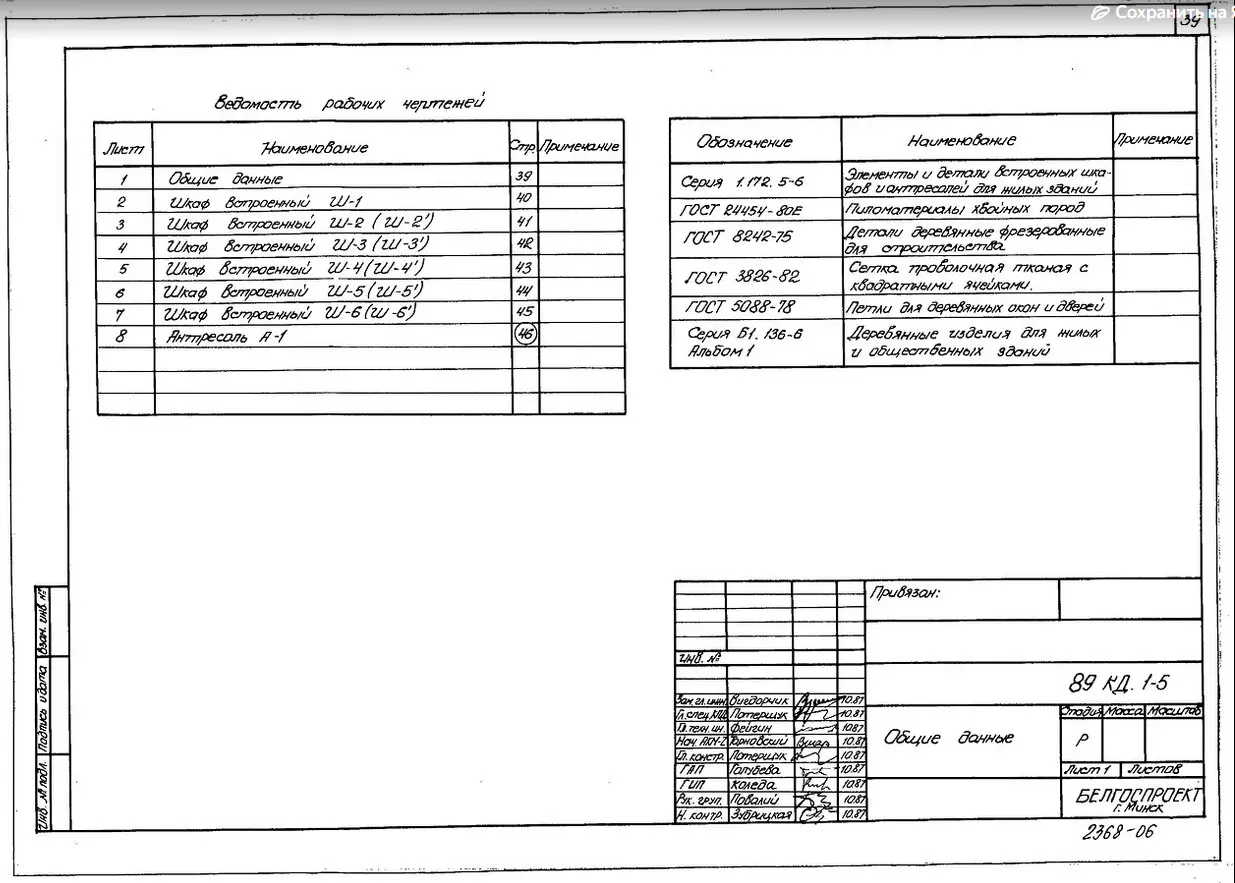 Сохранить на Я
39
Ведомость рабочих чертежей
Лист Наименование Стр. Примечание
1 Общие данные 39
2 Шкаф встроенный Ш-1 40
3 Шкаф встроенный Ш-2 (Ш-2') 41
4 Шкаф встроенный Ш-3 (Ш-3') 42
5 Шкаф встроенный Ш-4 (Ш-4') 43
6 Шкаф встроенный Ш-5 (Ш-5') 44
7 Шкаф встроенный Ш-6 (Ш-6') 45
8 Антресоль А-1 46
Обозначение Наименование Примечание
Серия 1.172.5-6 Элементы и детали встроенных шка-
фов и антресолей для жилых зданий
ГОСТ 24454-80Е Пиломатериалы хвойных пород
ГОСТ 8242-75 Детали деревянные фрезерованные
для строительства
ГОСТ 3826-82 Сетка проволочная тканая с
квадратными ячейками.
ГОСТ 5088-78 Петли для деревянных окон и дверей
Серия Б1.136-6 Деревянные изделия для жилых
Альбом 1 и общественных зданий
Взам. инв. №
Подпись и дата
Инв. № подл.
Привязан:
Инв. №
89 КД. 1-5
Зам. гл. инж. Вигдорчик 10.87
Гл. спец. Потершук 10.87
Гл. техн. ин. Фейгин 10.87
Нач. Тарновский 10.87
Гл. констр. Потершук 10.87
ГАП Голубева 10.87
ГИП Коледа 10.87
Рук. груп. Повалий 10.87
Н. контр. Зубрицкая 10.87
Общие данные
Стадия Масса Масштаб
Р
Лист 1 Листов
БЕЛГОСПРОЕКТ
г. Минск
2368-06